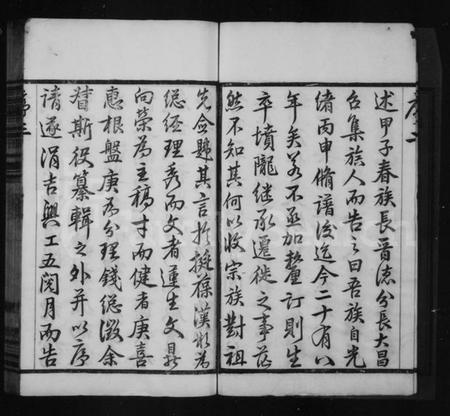 序二
述甲子春族長晋德分長大昌
台集族人而告之曰吾族自光
緒丙申脩譜後迄今二十有八
年矣若不丞加釐訂則生
卒墳隴継承遷徙之事茫
然不知其何以收宗族對祖
先僉韙其言於挺葆漢教為
総經理秀而文者蓮生文彩
向榮為主稿才而健者庚喜
惠根盤庚為分理錢総徵余
督斯役纂輯之外并以序
請遂涓吉興工五閱月而告
序三